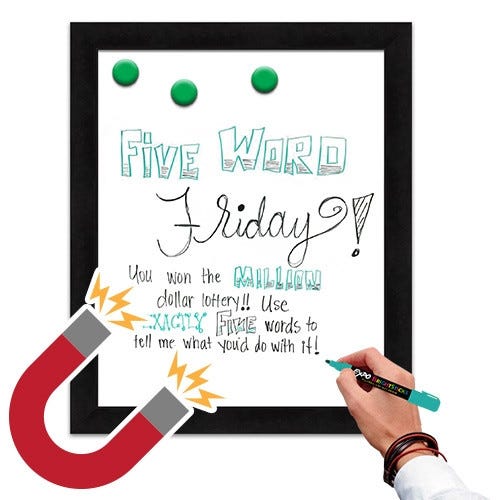 FIVE WORD
Friday!
You won the MILLION
dollar lottery!! Use
EXACTLY FIVE words to
tell me what you'd do with it!
EXPO BRIGHTSTICKS